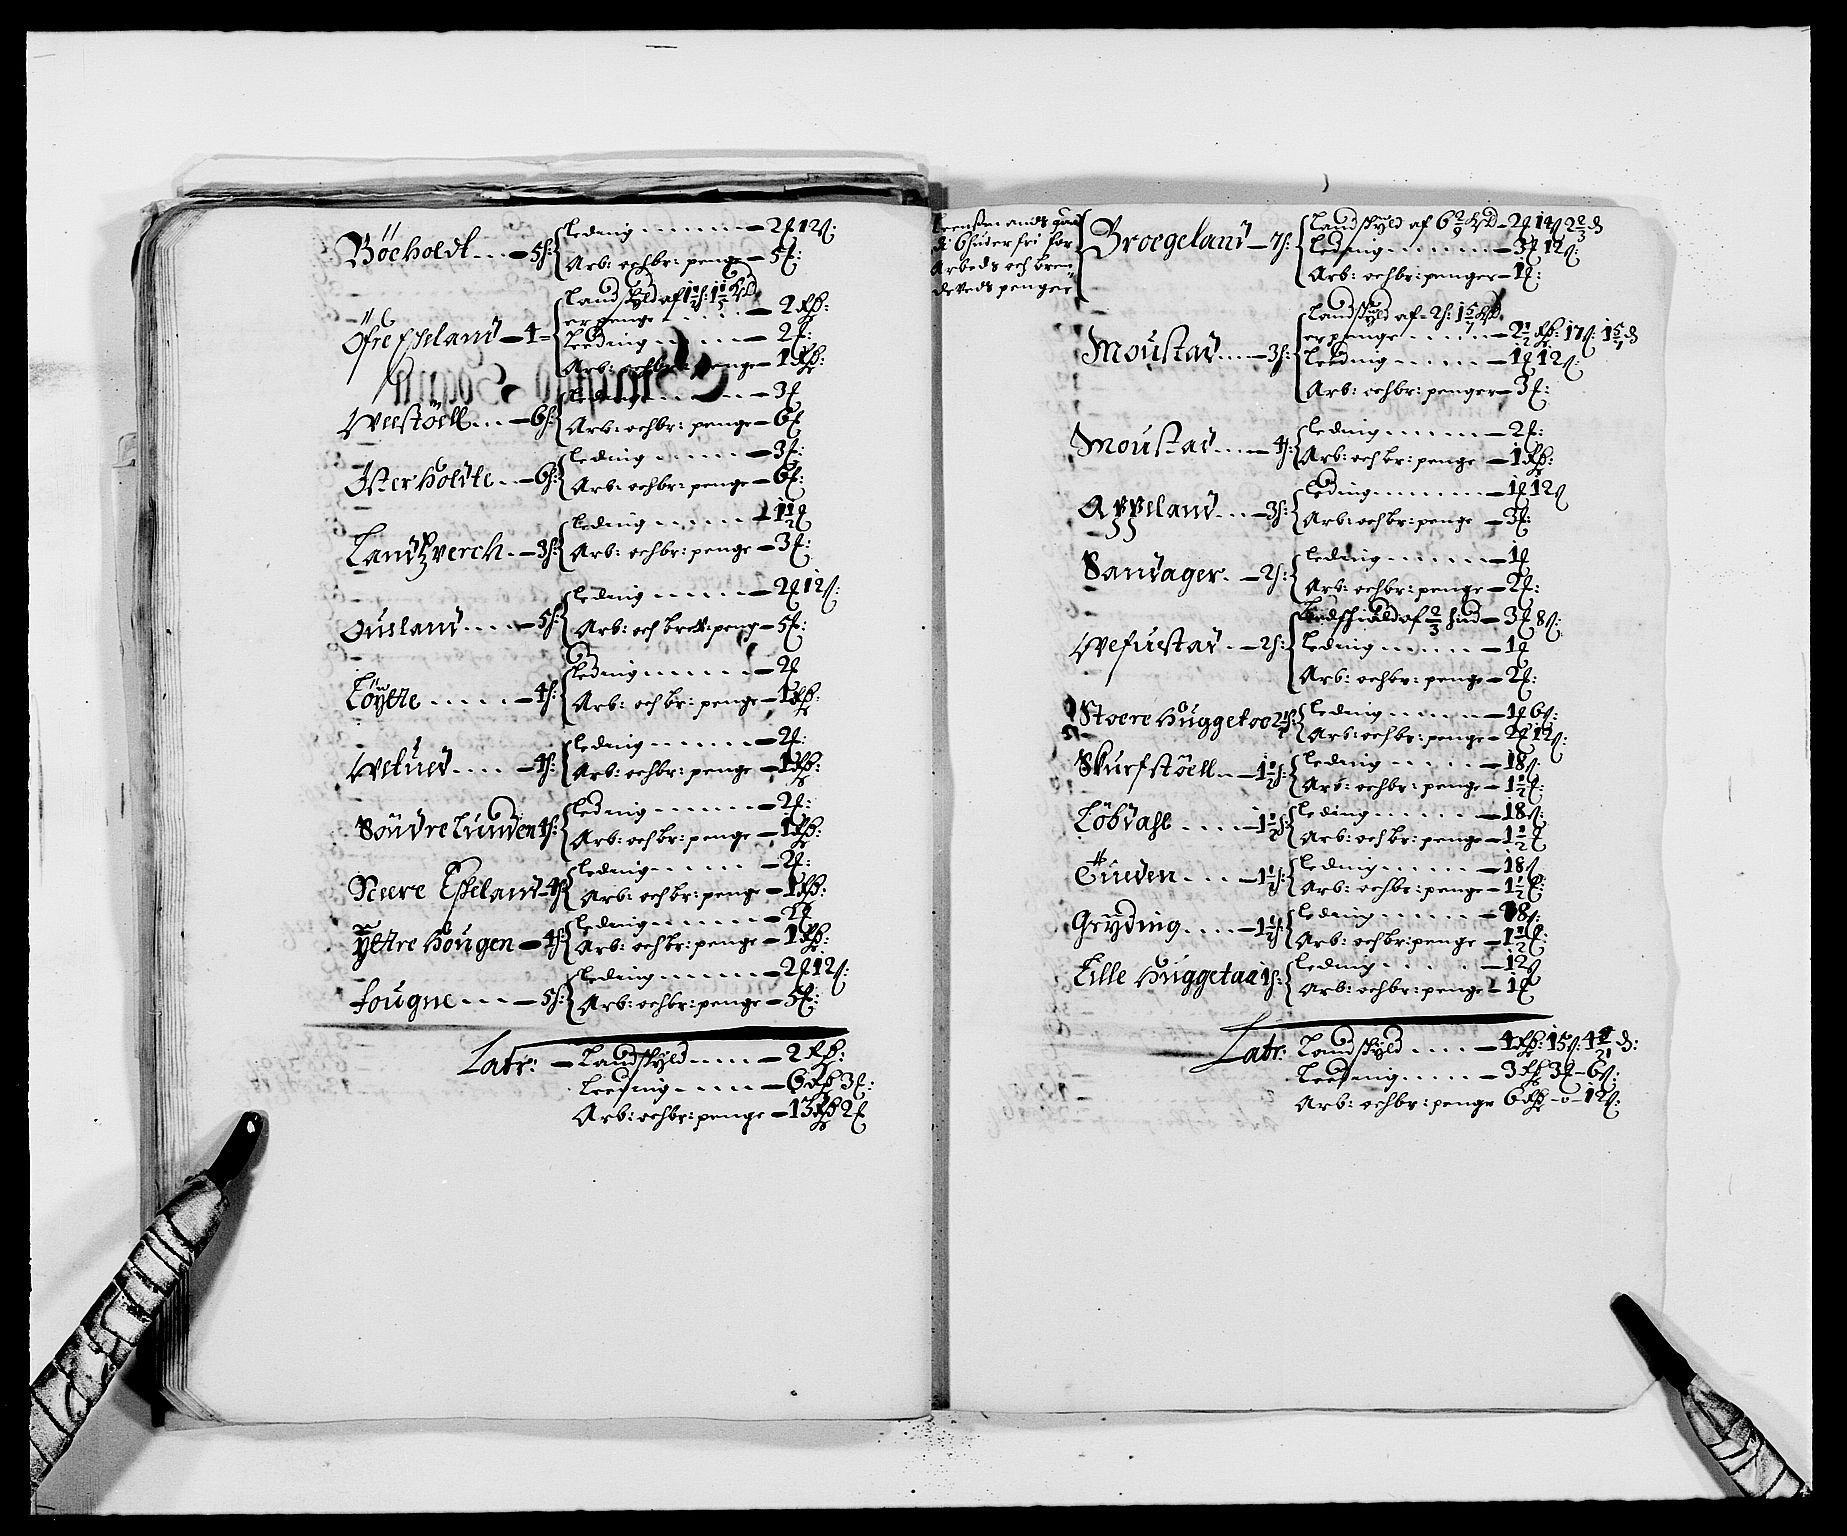 Böeholdt ... 5 h:
Leding ...... 2 ℳ 12 ß:
Arb: och br: penge 5 ℳ:
Öfre Espeland 4
Landskyld af 1 1/2 h: 1 1/2
er penge ...... 2 Rdr:
Leeding ...... 2 ℳ:
Arb: och br: penge 1 Rdr:
Weestöell ... 6 h:
Leding ...... 3 ℳ
Arb: och br: penge 6 ℳ
Isterholdte .. 6 h:
Leding ...... 3 ℳ:
Arb: och br: penge 6 ℳ:
Landzverch .. 3 h:
Leding ...... 1 1/2 ℳ
Arb: och br: penge 3 ℳ:
Ousland .... 5 h:
Leding ...... 2 ℳ 12 ß:
Arb: och br: peng 5 ℳ:
Löytte ..... 4 h:
Leding ...... 2 ℳ
Arb: och br: penge 1 Rdr:
Wefued .... 4 h:
Leding ...... 2 ℳ:
Arb: och br: penge 1 Rdr:
Söndre Lunden 4 h:
Leding ...... 2 ℳ:
Arb: och br: penge 1 Rdr:
Neere Espeland 4 h:
Leding ...... 2 ℳ:
Arb: och br: penge 1 Rdr:
Yttre Hougen 4 h:
Leding ...... 2 ℳ
Arb: och br: penge 1 Rdr:
Fougne ... 5 h:
Leding ...... 2 ℳ 12 ß:
Arb: och br: penge 5 ℳ:
Latr: Landskyld ..... 2 Rdr:
Leeding ..... 6 Rdr 3 ℳ:
Arb: och br: penge 13 Rdr 2 ℳ
Leensmands gaar
di 6 huder fri for
Arbeds och bren
deveds penger
Broegeland 7 h:
Landskyld af 6 2/9 2 ℳ 14 ß 2 2/3 d
Leding ...... 3 ℳ 12 ß:
Arb: och br: penger 1 ℳ:
Moustad .... 3 h:
Landskyld af 2 h: 1 5/7
er penge ...... 2 1/2 Rdr: 17 ß: 1 5/7 d
Leeding ...... 1 ℳ 12 ß:
Arb: och br: penger 3 ℳ:
Moustad .... 4 h:
Leding ...... 2 ℳ:
Arb: och br: penge 1 Rdr:
Appeland ... 3 h:
Leding ...... 1 ℳ 12 ß
Arb: och br: penge 3 ℳ:
Sandager. 2 h:
Leding ...... 1 ℳ
Arb: och br: penge 2 ℳ:
Wefuestad .. 2 h:
Landschiuld af 2/3 hud 3 ℳ 8 ß:
Leding ...... 1 ℳ
Arb: och br: penge 2 ℳ:
Stoere Huggetoo
Leding ...... 1 ℳ 6 ß:
Arb: och br: penge 2 ℳ 12 ß:
Skurfstöell .. 1 1/2 h:
Leding ..... 18 ß:
Arb: och br: penge 1 1/2 ℳ:
Löbdahl .... 1 1/2 h:
Leding ...... 18 ß:
Arb: och br: penge 1 1/2 ℳ
Tueden ... 1 1/2 h:
Leding ...... 18 ß
Arb: och br: penge 1 1/2 ℳ:
Gryding .... 1 1/2 h:
Leding ...... 18 ß:
Arb: och br: penge 1 1/2 ℳ:
Lille Huggetaa 1 h:
Leding ..... 12 ß
Arb: och br: penge 1 ℳ
Latr: Landskyld .... 4 Rdr: 15 ß: d:
Leeding ..... 3 Rdr 3 ℳ 6 ß:
Arb: och br: penge 6 Rdr - 0 - 12 ß: